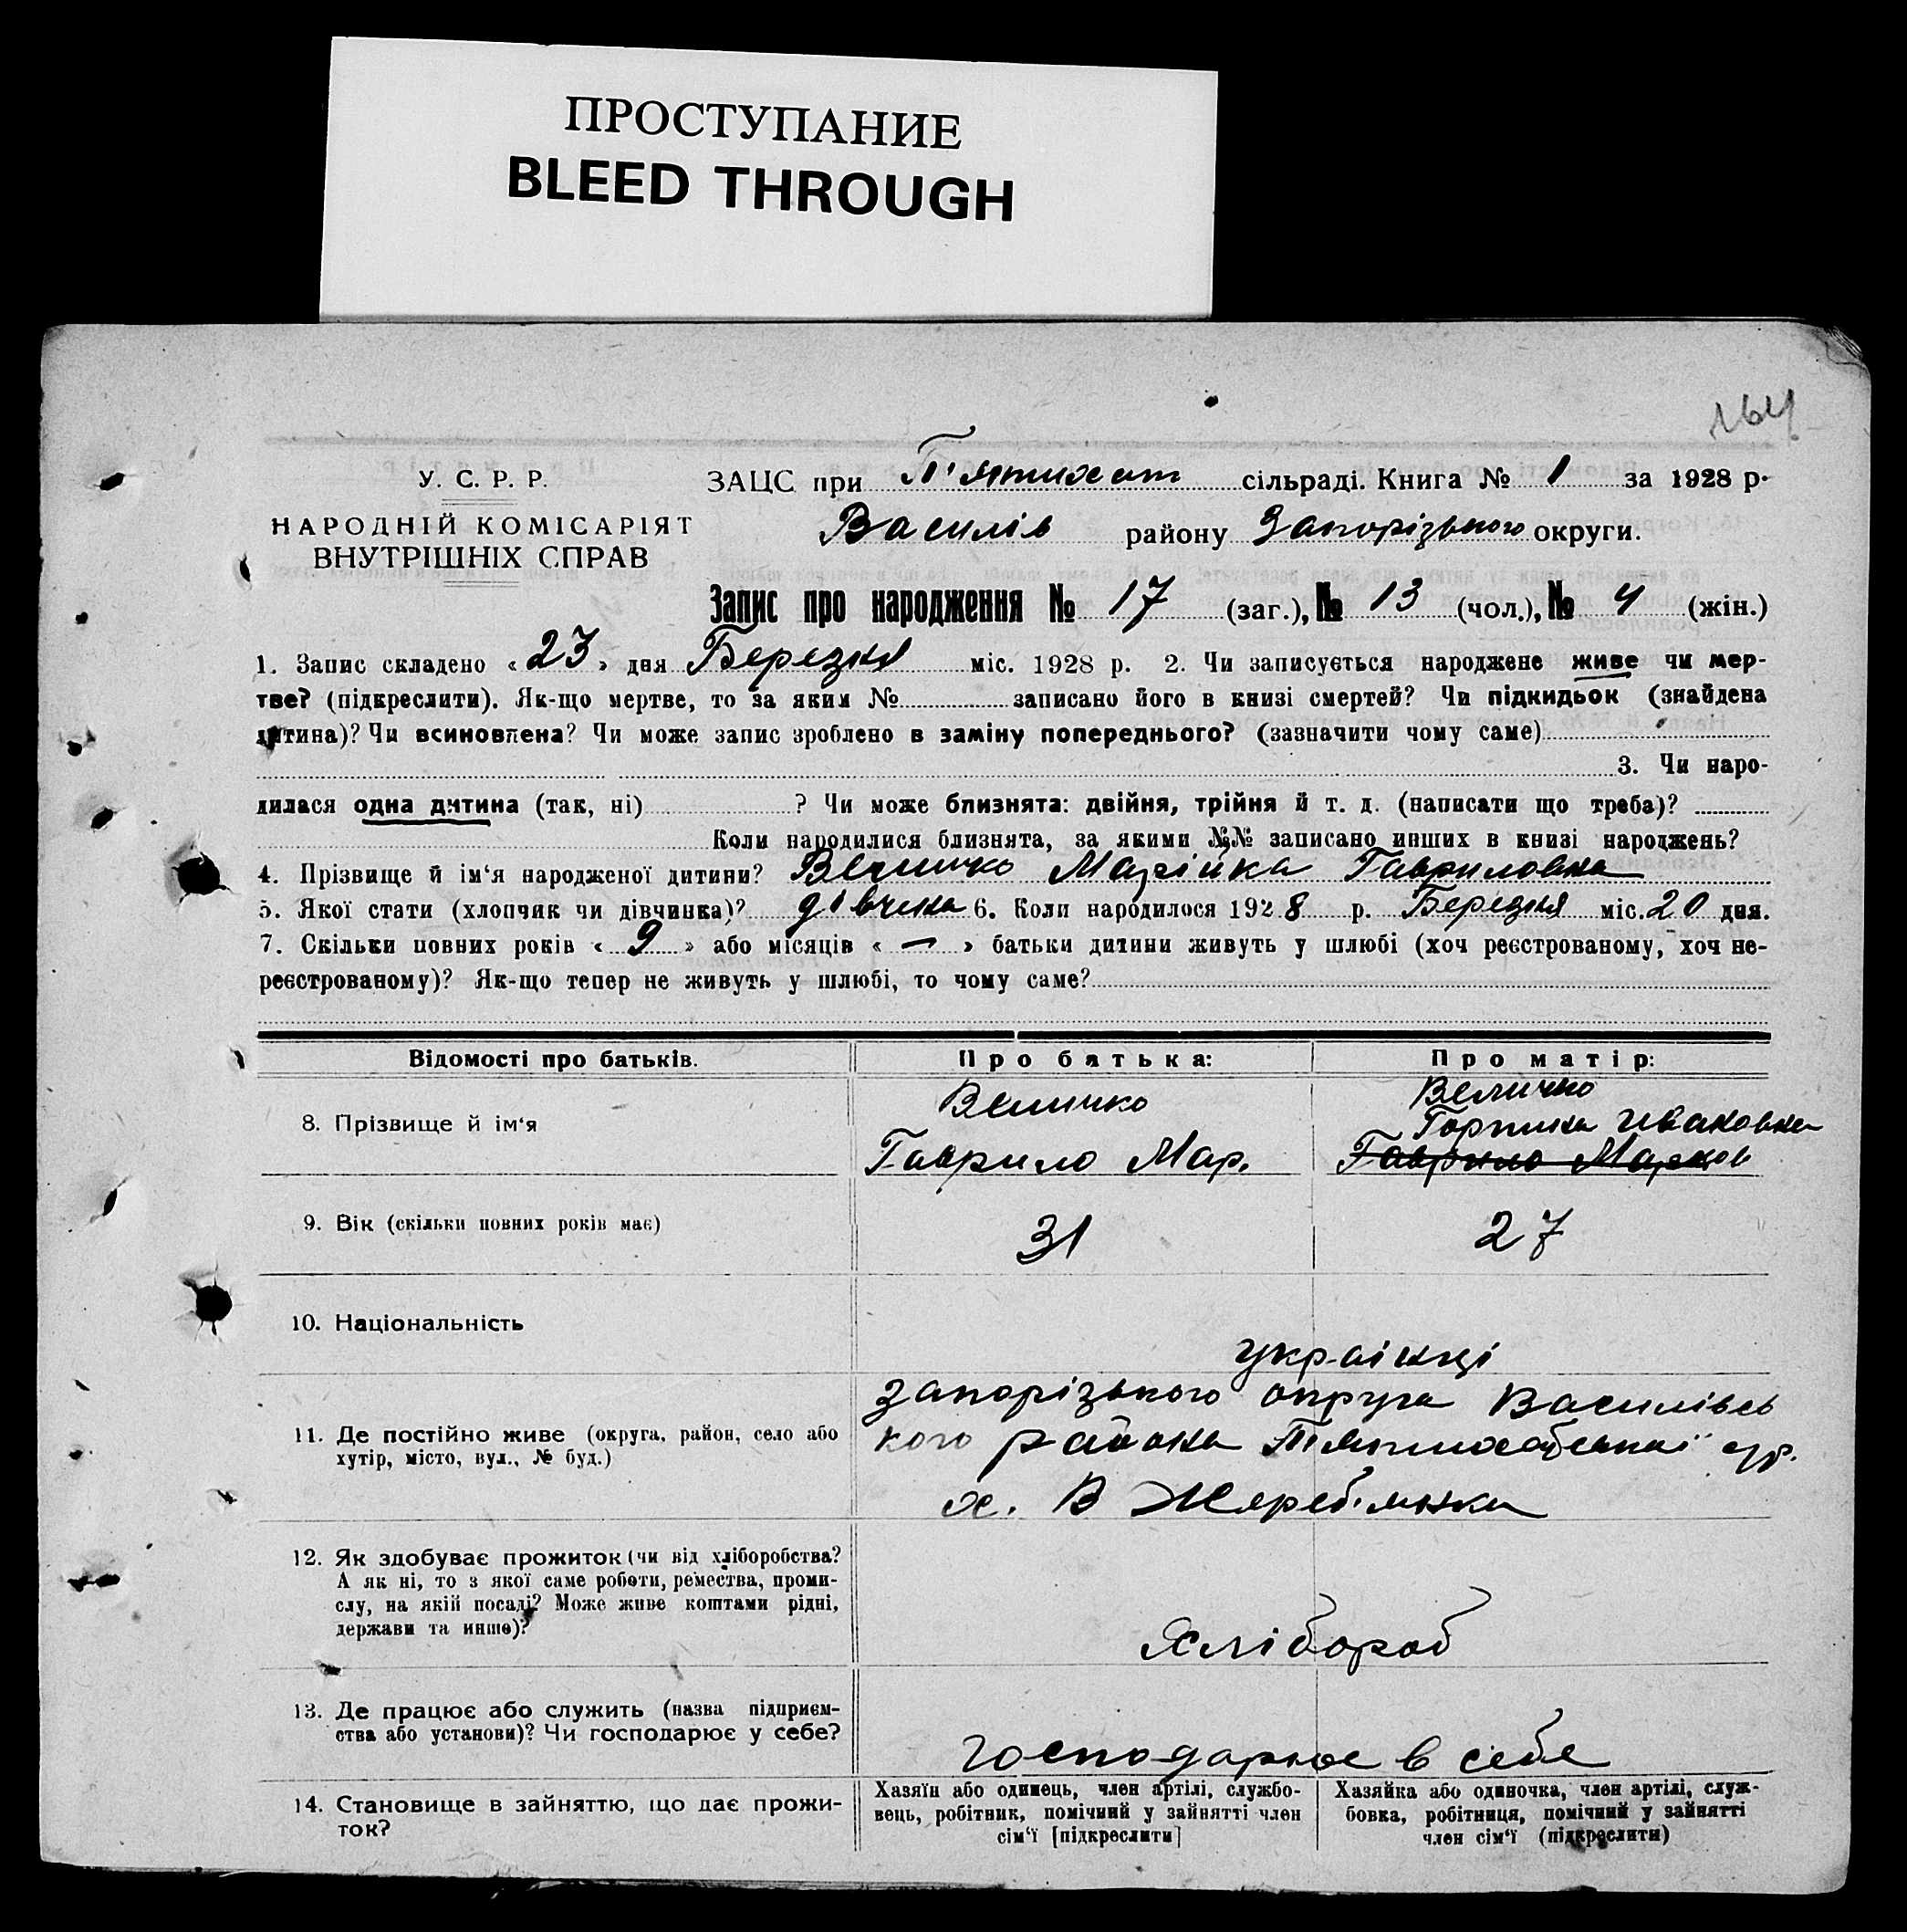 ПРОСТУПАНИЕ
BLEED THROUGH
164
У. С. Р. Р.
НАРОДНІЙ КОМІСАРІЯТ
ВНУТРІШНІХ СПРАВ
ЗАЦС при П'ятихат сільраді. Книга № 1 за 1928 р.
Василів району Запорізького округи.
Запис про народження № 17 (заг.), № 13 (чол.), № 4 (жін.)
1. Запис складено «23» дня Березня міс. 1928 р. 2. Чи записується народжене живе чи мер-
тве? (підкреслити). Як-що мертве, то за яким № записано його в книзі смертей? Чи підкидьок (знайдена
дитина)? Чи всиновлена? Чи може запис зроблено в заміну попереднього? (зазначити чому саме)
3. Чи наро-
дилася одна дитина (так, ні) ? Чи може близнята: двійня, трійня й т. д. (написати що треба)?
Коли народилися близнята, за якими №№ записано инших в книзі народжень?
4. Прізвище й ім'я народженої дитини? Величко Марійка Гавриловна
5. Якої стати (хлопчик чи дівчинка)? дівчена 6. Коли народилося 1928 р. Березня міс. 20 дня.
7. Скільки повних років «9» або місяців « — » батьки дитини живуть у шлюбі (хоч реєстрованому, хоч не-
реєстрованому)? Як-що тепер не живуть у шлюбі, то чому саме?
Відомості про батьків.
Про батька:
Про матір:
8. Прізвище й ім'я
Величко
Гаврило Мар.
Величко
Горпина Ивановна
Гаврило Марков
9. Вік (скільки повних років має)
31
27
10. Національність
українці
11. Де постійно живе (округа, район, село або
хутір, місто, вул., № буд.)
Запорізького округа Василівсь
кого района
х. В Жереб'янка
12. Як здобуває прожиток (чи від хліборобства?
А як ні, то з якої саме роботи, ремества, проми-
слу, на якій посаді? Може живе коштами рідні,
держави та инше)?
Хлібороб
13. Де працює або служить (назва підприєм-
ства або установи)? Чи господарює у себе?
господарює в себе
14. Становище в зайняттю, що дає прожи-
ток?
Хазяїн або одинець, член артілі, службо-
вець, робітник, помічний у зайнятті член
сім'ї [підкреслити]
Хазяйка або одиночка, член артілі, служ-
бовка, робітниця, помічний у зайнятті
член сім'ї (підкреслити)